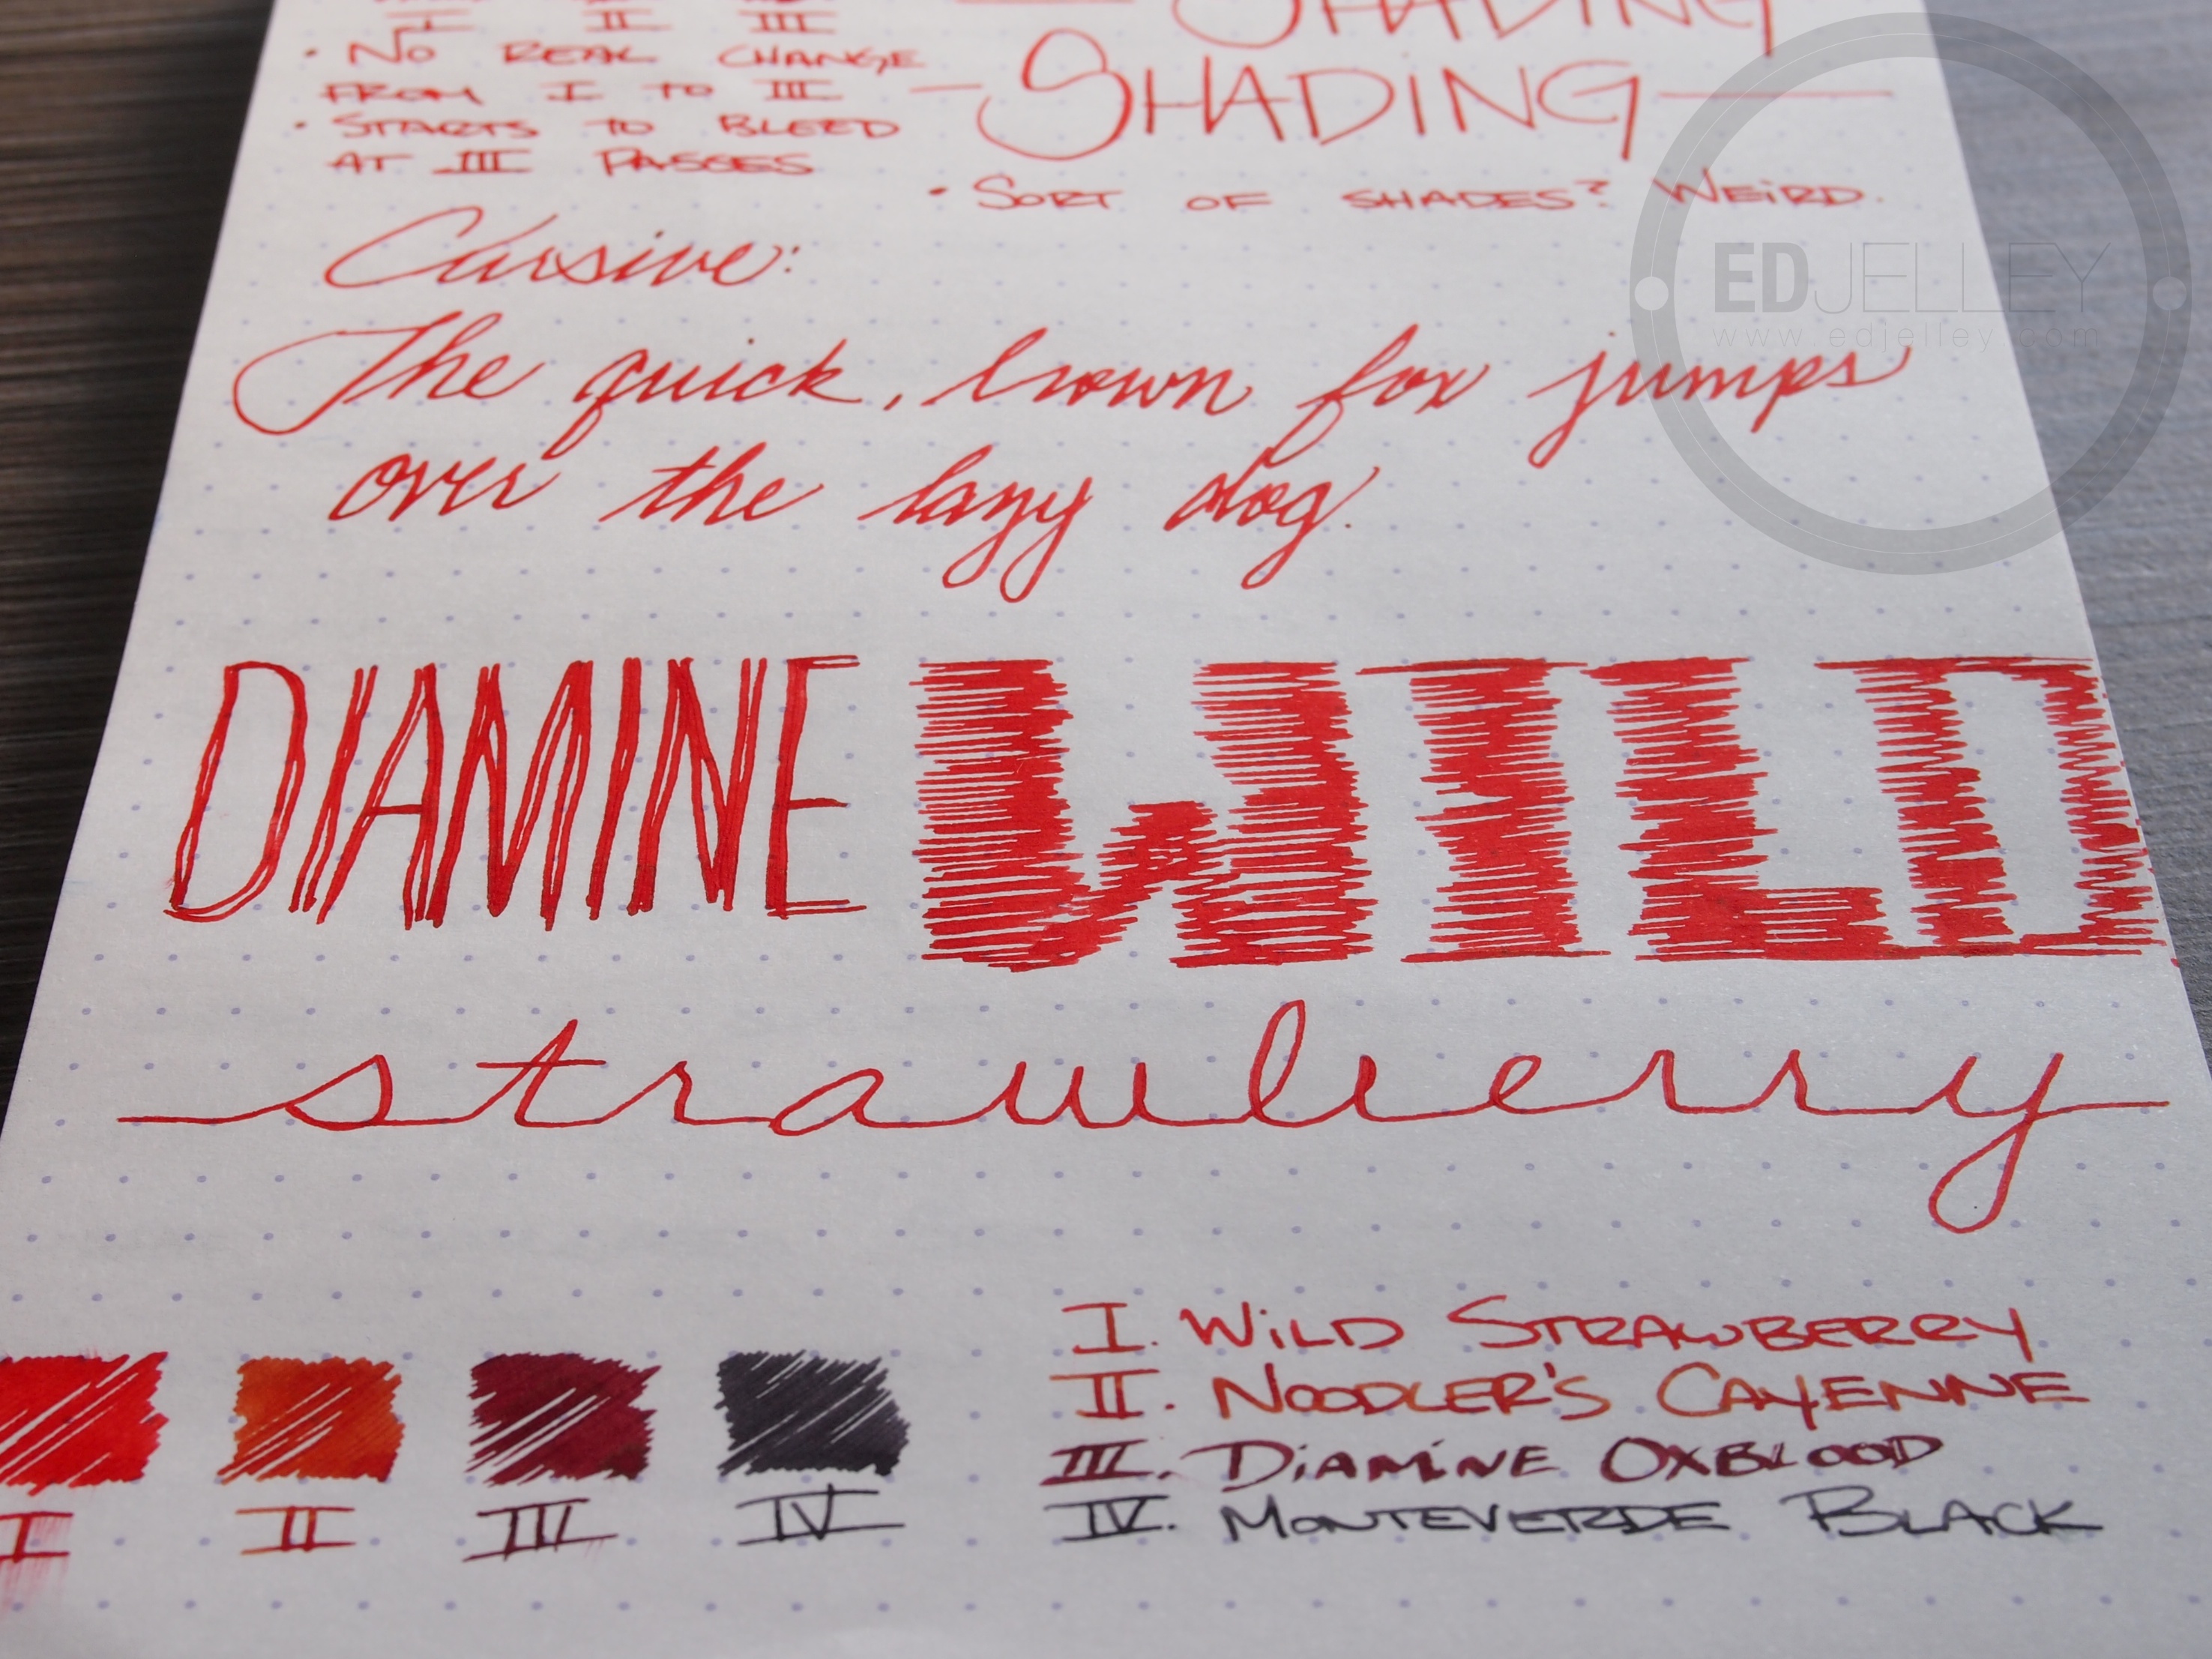 I II III
SHADING
• NO REAL CHANGE
FROM I TO III
• STARTS TO BLEED
AT III PASSES
- SHADING -
• SORT OF SHADES? WEIRD.
Cursive:
The quick, brown fox jumps
over the lazy dog.
DIAMINE WILD
strawberry
I. WILD STRAWBERRY
II. NOODLER'S CAYENNE
III. DIAMINE OXBLOOD
IV. MONTEVERDE BLACK
I II III IV
EDJELLEY
www.edjelley.com